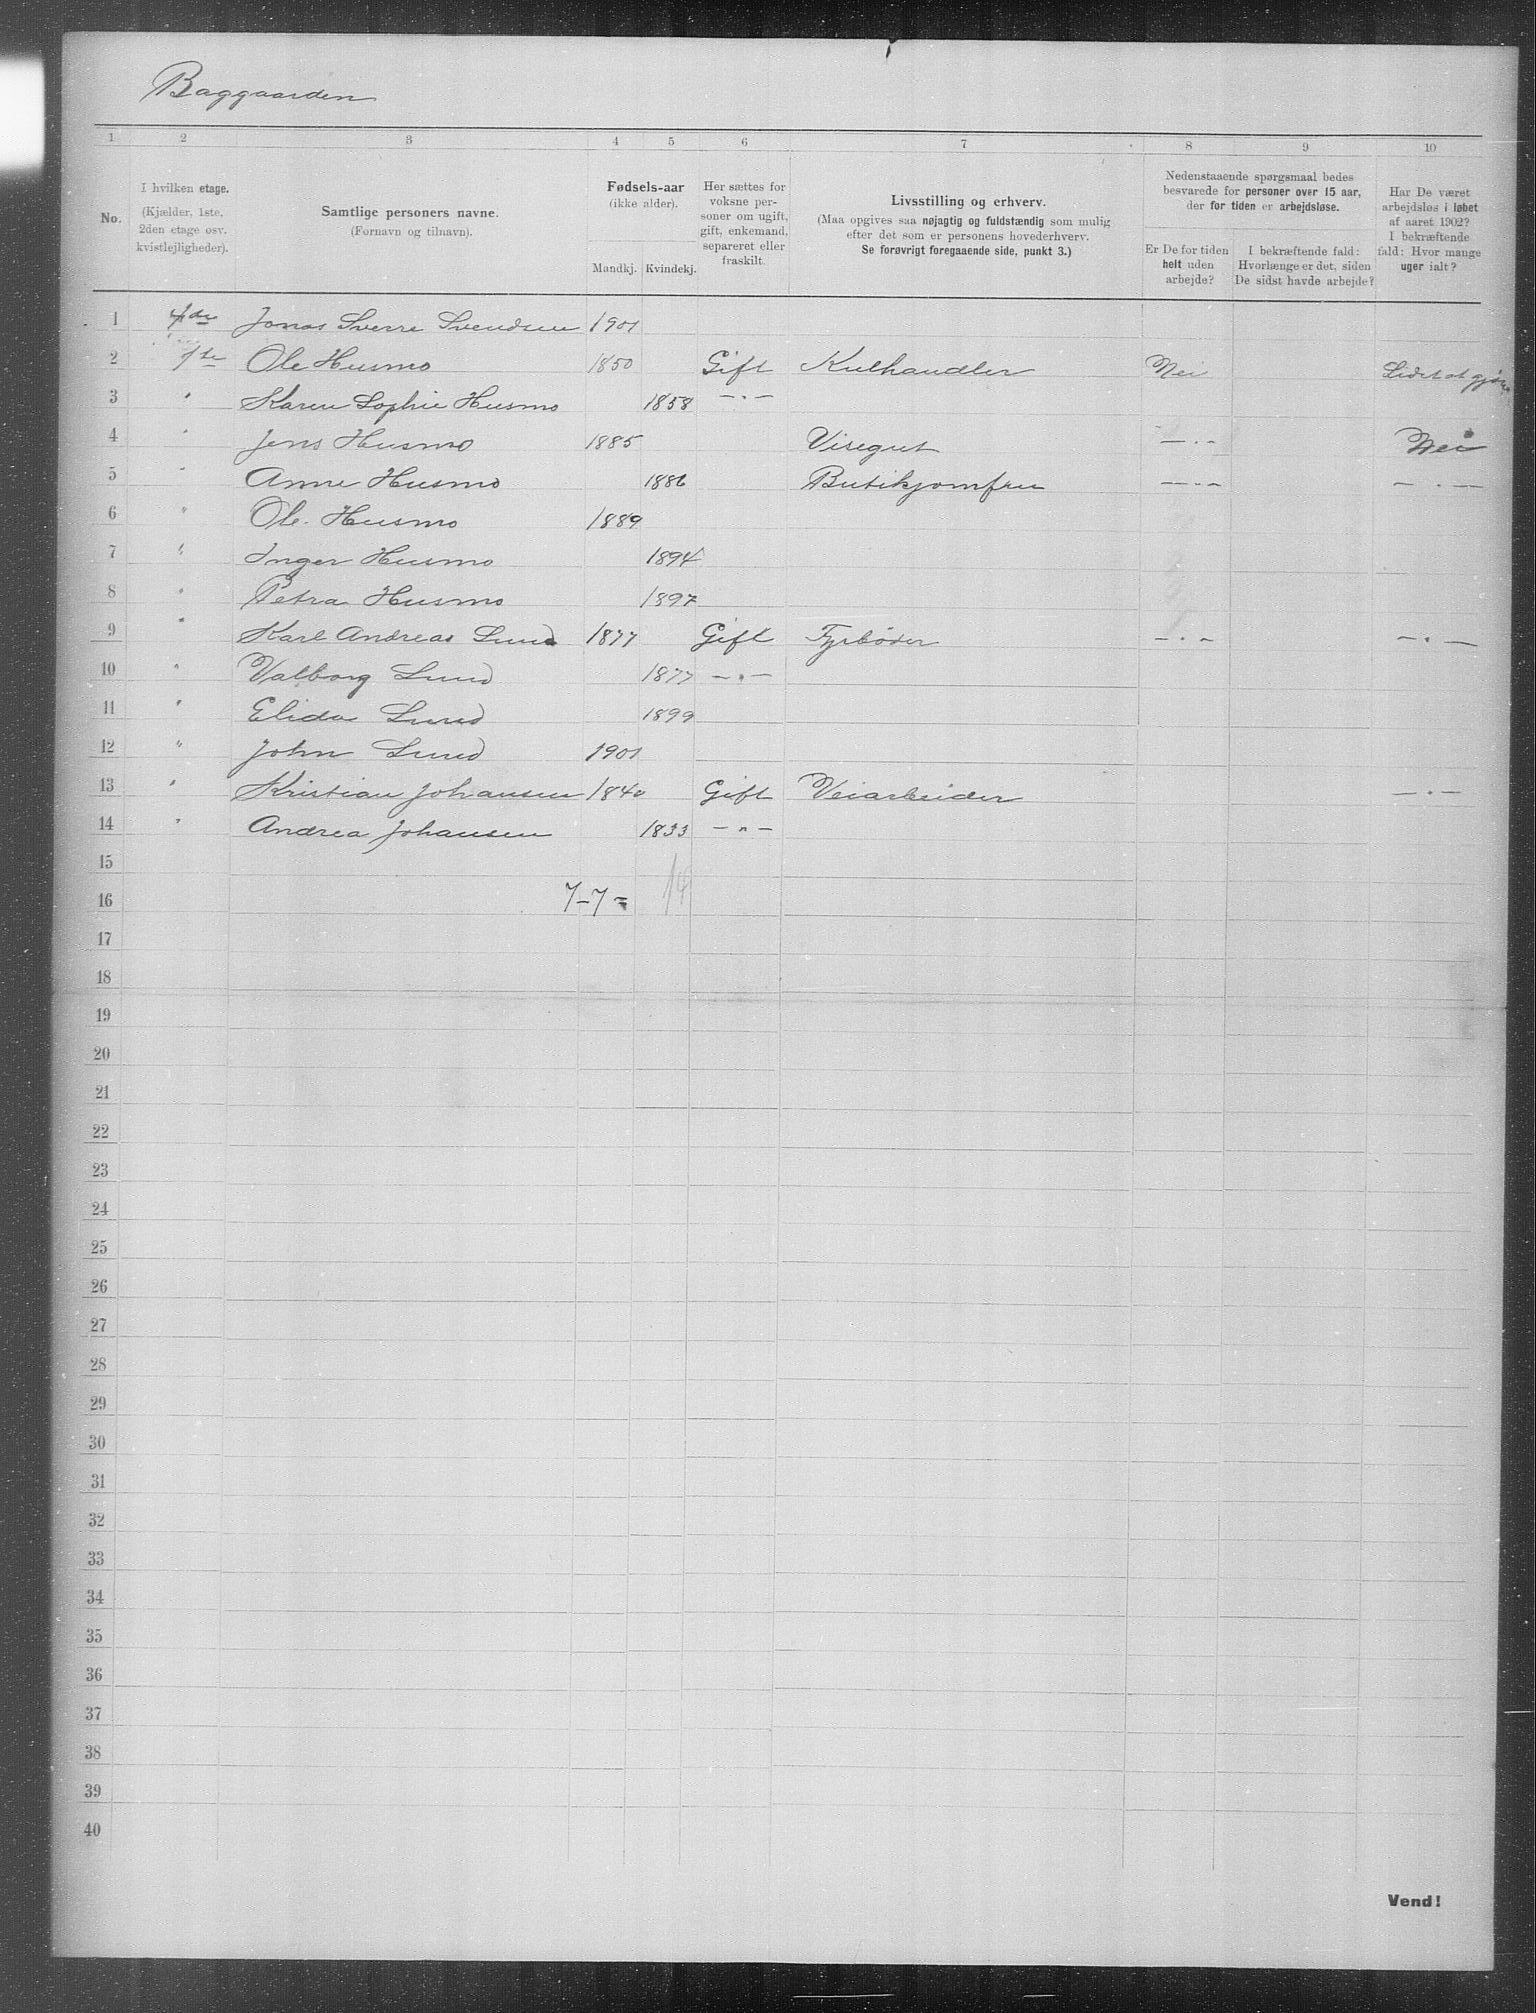 Baggaarden
1 2 3 4 5 6 7 8 9 10
No.
I hvilken etage.
(Kjælder, 1ste, 2den etage osv. kvistlejligheder).
Samtlige personers navne.
(Fornavn og tilnavn).
Fødsels-aar
(ikke alder).
Mandkj. Kvindekj.
Her sættes for voksne personer om ugift, gift, enkemand, separeret eller fraskilt.
Livsstilling og erhverv.
(Maa opgives saa nøjagtig og fuldstændig som mulig
efter det som er personens hovederhverv.
Se forøvrigt foregaaende side, punkt 3.)
Nedenstaaende spørgsmaal bedes
besvarede for personer over 15 aar,
der for tiden er arbejdsløse.
Er De for tiden
helt uden
arbejde?
I bekræftende fald:
Hvorlænge er det, siden
De sidst havde arbejde?
Har De været
arbejdsløs i løbet
af aaret 1902?
I bekræftende
fald: Hvor mange
uger ialt?
1 Jonas Sverre Svendsen 1901
2 1ste Ole Husmo 1850 Gift Kulhandler Nei Lidet at gjøre
3 " Karen Sophie Husmo 1858 —"—
4 " Jens Husmo 1885 Visegut —"— Nei
5 " Anne Husmo 1886 Butikjomfru —"— —"—
6 " Ole Husmo 1889
7 " Inger Husmo 1894
8 " Petra Husmo 1897
9 " Karl Andreas Lund 1877 Gift Fyrbøder —"— —"—
10 " Valborg Lund 1877 —"—
11 " Elida Lund 1899
12 " John Lund 1901
13 " Kristian Johansen 1840 Gift Veiarbeider —"—
14 " Andrea Johansen 1833 —"—
15
16 7-7= 14
17
18
19
20
21
22
23
24
25
26
27
28
29
30
31
32
33
34
35
36
37
38
39
40
Vend!